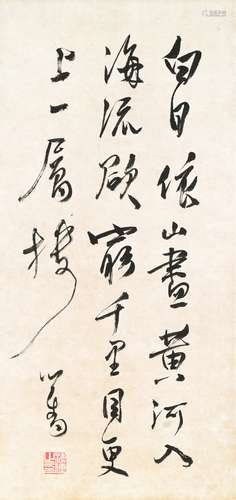 白日依山盡黃河入
海流欲窮千里目更
上一層樓
心畬